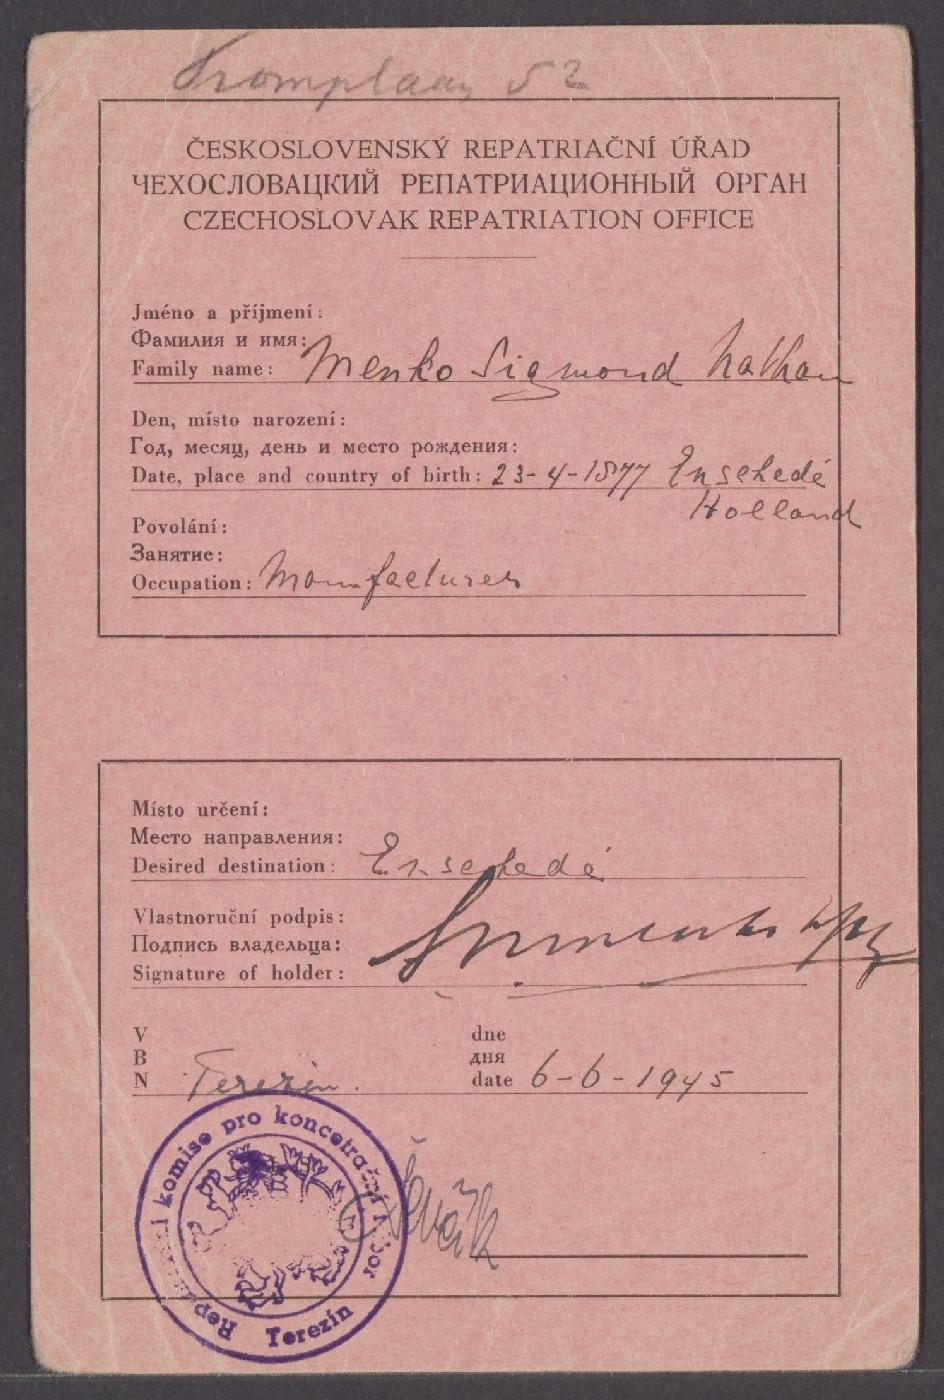 Tromplaan 52
ČESKOSLOVENSKÝ REPATRIAČNÍ ÚŘAD
ЧЕХОСЛОВАЦКИЙ РЕПАТРИАЦИОННЫЙ ОРГАН
CZECHOSLOVAK REPATRIATION OFFICE
Jméno a příjmení:
Фамилия и имя:
Family name: Menko Sigmond Nathan
Den, místo narození:
Год, месяц, день и место рождения:
Date, place and country of birth: 23-4-1877 Enschedé
Holland
Povolání:
Занятие:
Occupation: Manufacturer
Místo určení:
Место направления:
Desired destination: Enschedé
Vlastnoruční podpis:
Подпись владельца:
Signature of holder:
V
В
N Terezin.
dne
дня
date 6-6-1945
komise pro koncetrační
Terezín